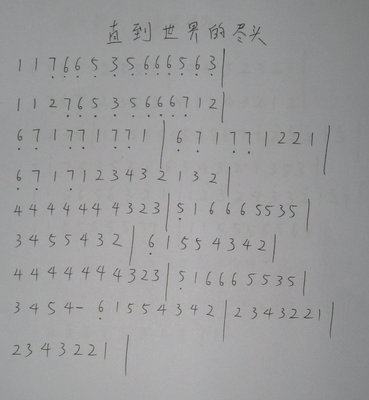 直到世界的尽头
1 1 7 6 6 5 3 5 6 6 6 5 6 3 |
1 1 2 7 6 5 3 5 6 6 6 7 1 2
6 7 1 7 7 1 7 7 1 | 6 7 1 7 7 1 2 2 1 |
6 7 1 7 1 2 3 4 3 2 1 3 2 |
4 4 4 4 4 4 4 3 2 3 | 5 1 6 6 6 5 5 3 5 |
3 4 5 5 4 3 2 | 6 1 5 5 4 3 4 2 |
4 4 4 4 4 4 4 3 2 3 | 5 1 6 6 6 5 5 3 5 |
3 4 5 4 - 6 1 5 5 4 3 4 2 | 2 3 4 3 2 2 1 |
2 3 4 3 2 2 1 |